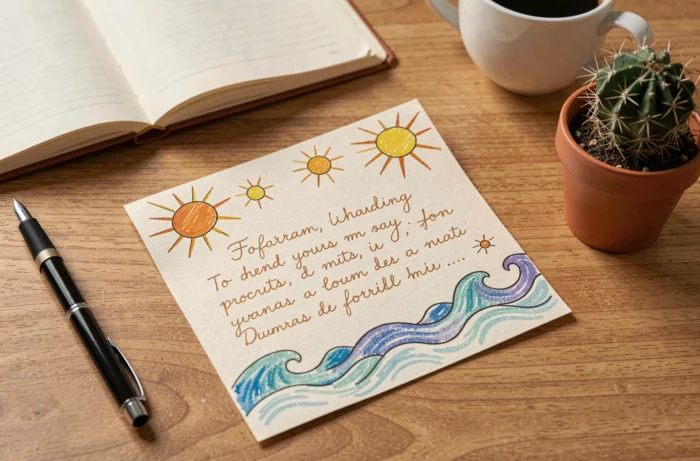 Fofarram, Whaiding
To dhend yours m say, fon
procruts, d mits, iu y,
yvanas a loum des a mati
Dumras de forrill hniu ....